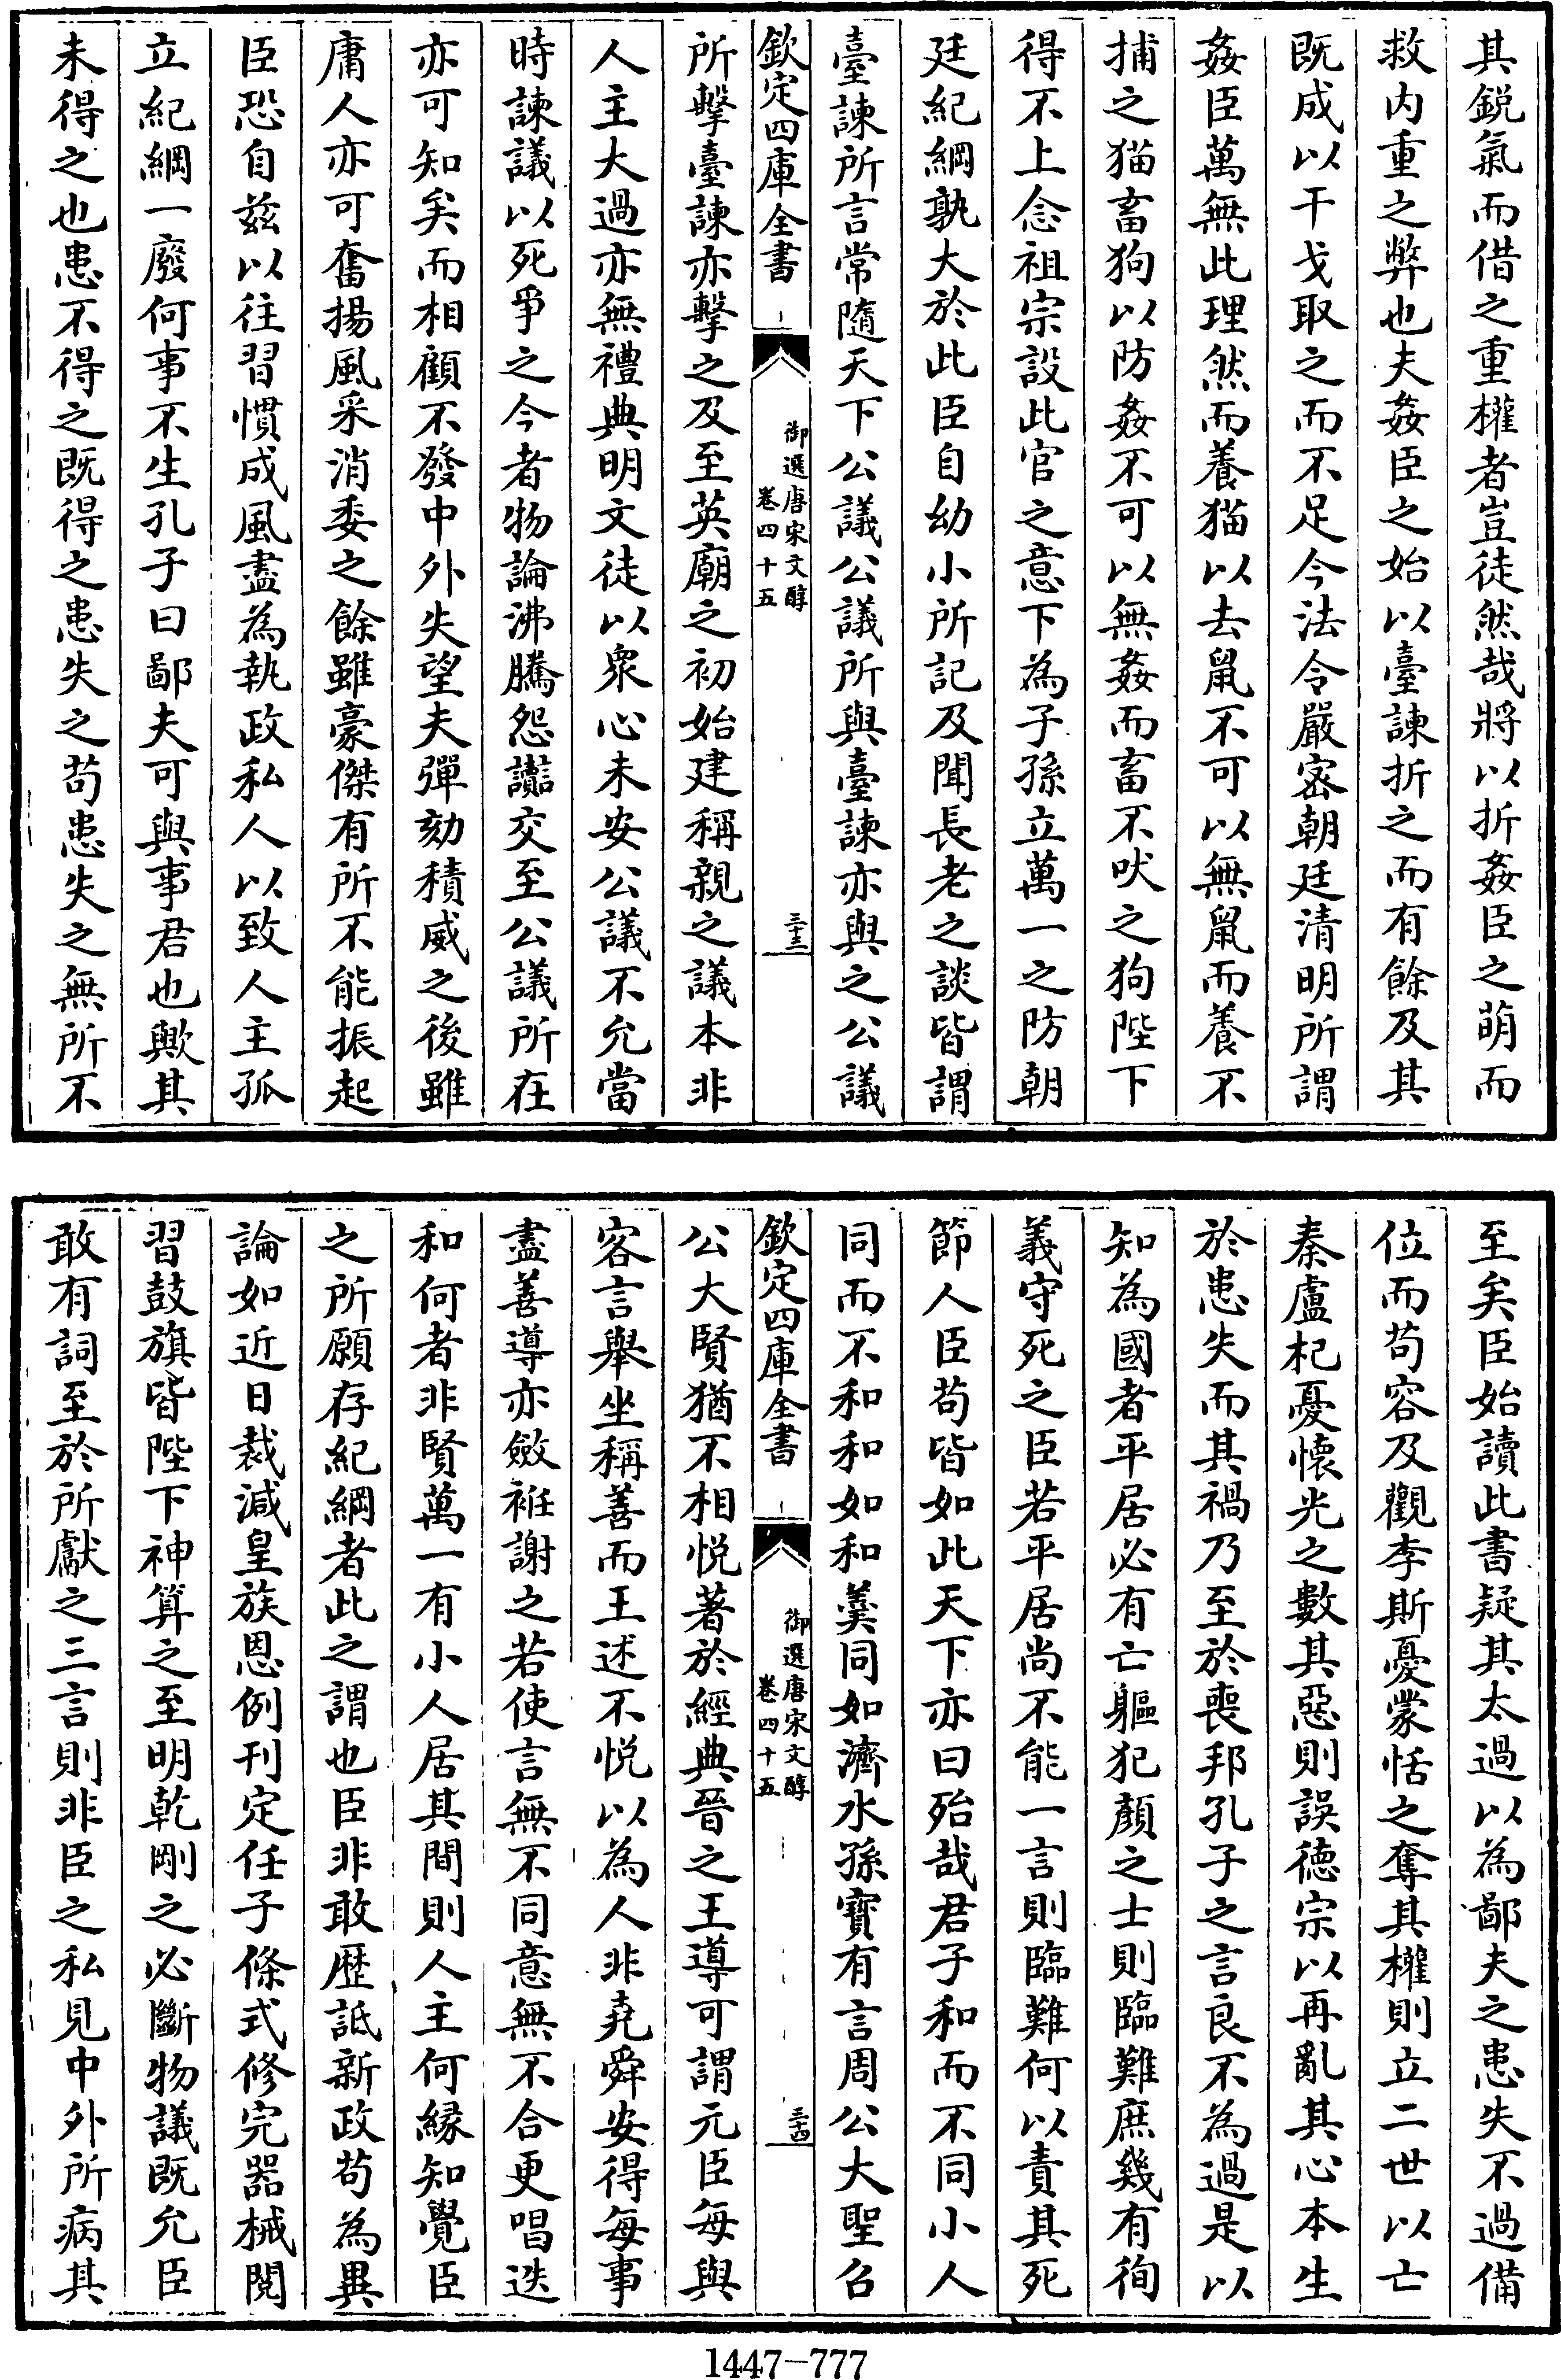 其鋭氣而借之重權者豈徒然哉將以折姦臣之萌而
救内重之弊也夫姦臣之始以臺諫折之而有餘及其
既成以干戈取之而不足今法令嚴密朝廷清明所謂
姦臣萬無此理然而養猫以去鼠不可以無鼠而養不
捕之猫畜狗以防姦不可以無姦而畜不吠之狗陛下
得不上念祖宗設此官之意下為子孫立萬一之防朝
廷紀綱孰大於此臣自幼小所記及聞長老之談皆謂
臺諫所言常隨天下公議公議所與臺諫亦與之公議
欽定四庫全書
御選唐宋文醇
卷四十五
三十三
所擊臺諫亦擊之及至英廟之初始建稱親之議本非
人主大過亦無禮典明文徒以衆心未安公議不允當
時諫議以死爭之今者物論沸騰怨讟交至公議所在
亦可知矣而相顧不發中外失望夫彈劾積威之後雖
庸人亦可奮揚風采消委之餘雖豪傑有所不能振起
臣恐自兹以往習慣成風盡為執政私人以致人主孤
立紀綱一廢何事不生孔子曰鄙夫可與事君也歟其
未得之也患不得之既得之患失之苟患失之無所不
至矣臣始讀此書疑其太過以為鄙夫之患失不過備
位而苟容及觀李斯憂蒙恬之奪其權則立二世以亡
秦盧杞憂懷光之數其惡則誤德宗以再亂其心本生
於患失而其禍乃至於喪邦孔子之言良不為過是以
知為國者平居必有亡軀犯顏之士則臨難庶幾有徇
義守死之臣若平居尚不能一言則臨難何以責其死
節人臣苟皆如此天下亦曰殆哉君子和而不同小人
同而不和和如和羹同如濟水孫寶有言周公大聖召
欽定四庫全書
御選唐宋文醇
卷四十五
三十四
公大賢猶不相悦著於經典晉之王導可謂元臣每與
客言舉坐稱善而王述不悦以為人非堯舜安得每事
盡善導亦斂袵謝之若使言無不同意無不合更唱迭
和何者非賢萬一有小人居其間則人主何縁知覺臣
之所願存紀綱者此之謂也臣非敢歷詆新政苟為異
論如近日裁減皇族恩例刊定任子條式修完器械閱
習鼓旗皆陛下神算之至明乾剛之必斷物議既允臣
敢有詞至於所獻之三言則非臣之私見中外所病其
1447-777